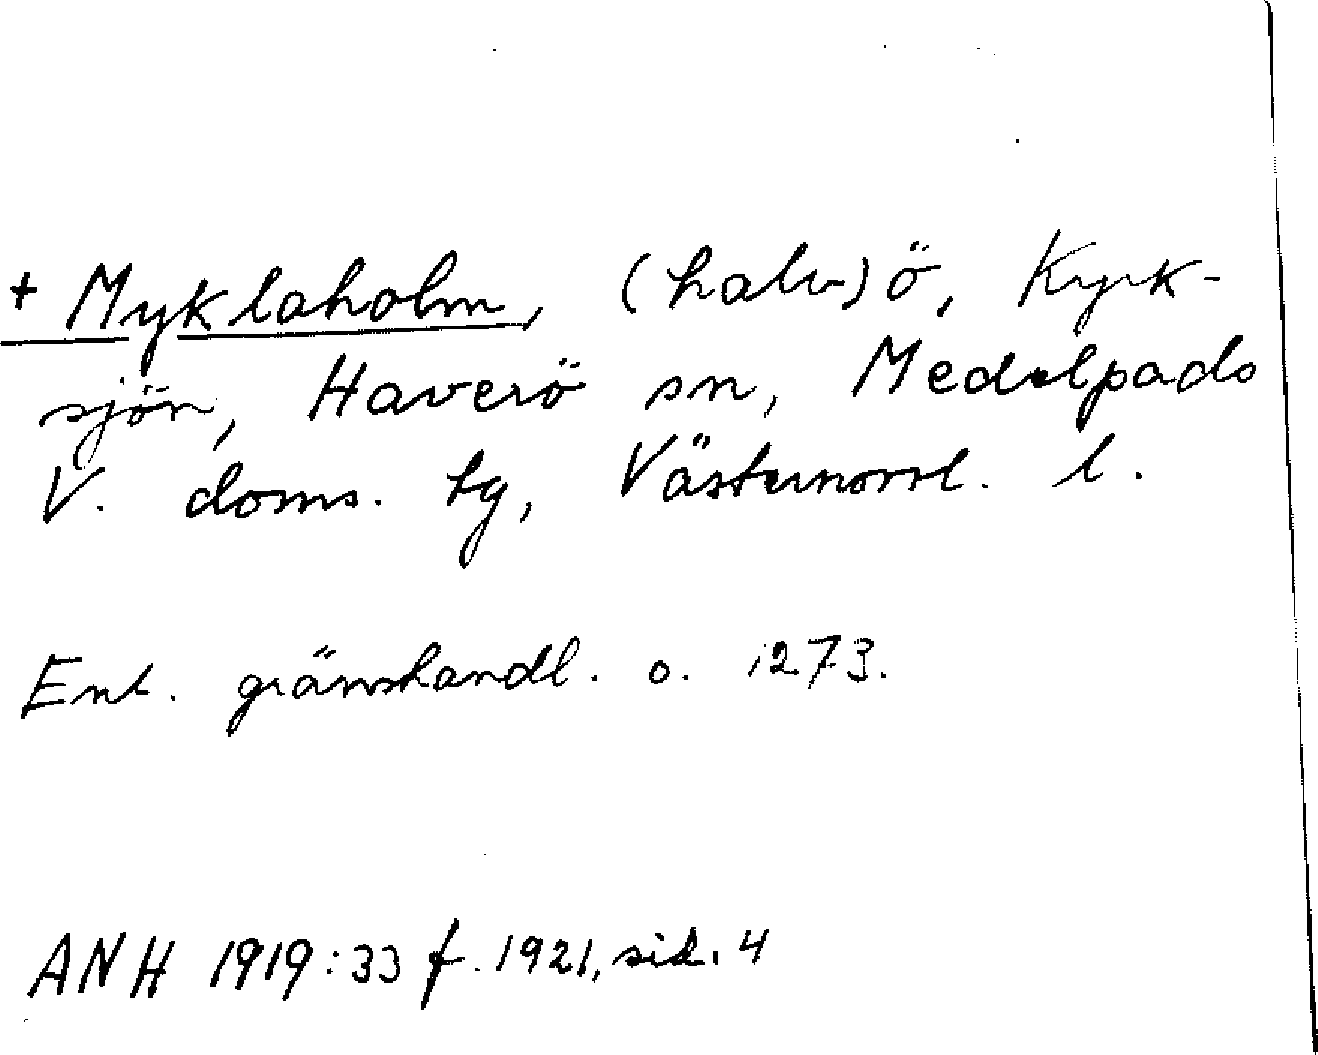 + Myklaholm, (halv-)ö, Kyrk-
sjön, Haverö sn, Medelpads
V. doms. tg, Västernorrl. l.
Enl. gränshandl. o. 1273.
ANH 1919:33 f. 1921, sid. 4